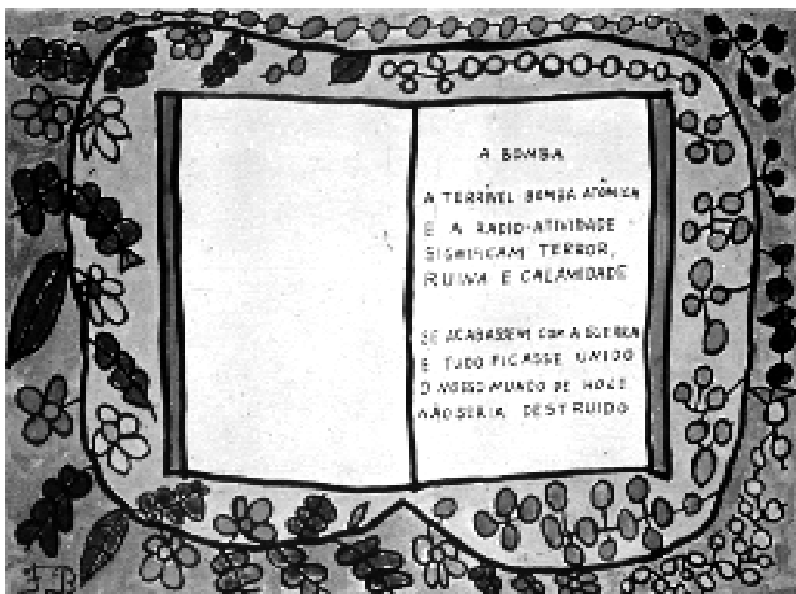 A BOMBA
A TERRÍVEL BOMBA ATÔMICA
E A RADIO-ATIVIDADE
SIGNIFICAM TERROR,
RUINA E CALAMIDADE
SE ACABASSEM COM A GUERRA
E TUDO FICASSE UNIDO
O NOSSO MUNDO DE HOJE
NÃO SERIA DESTRUIDO